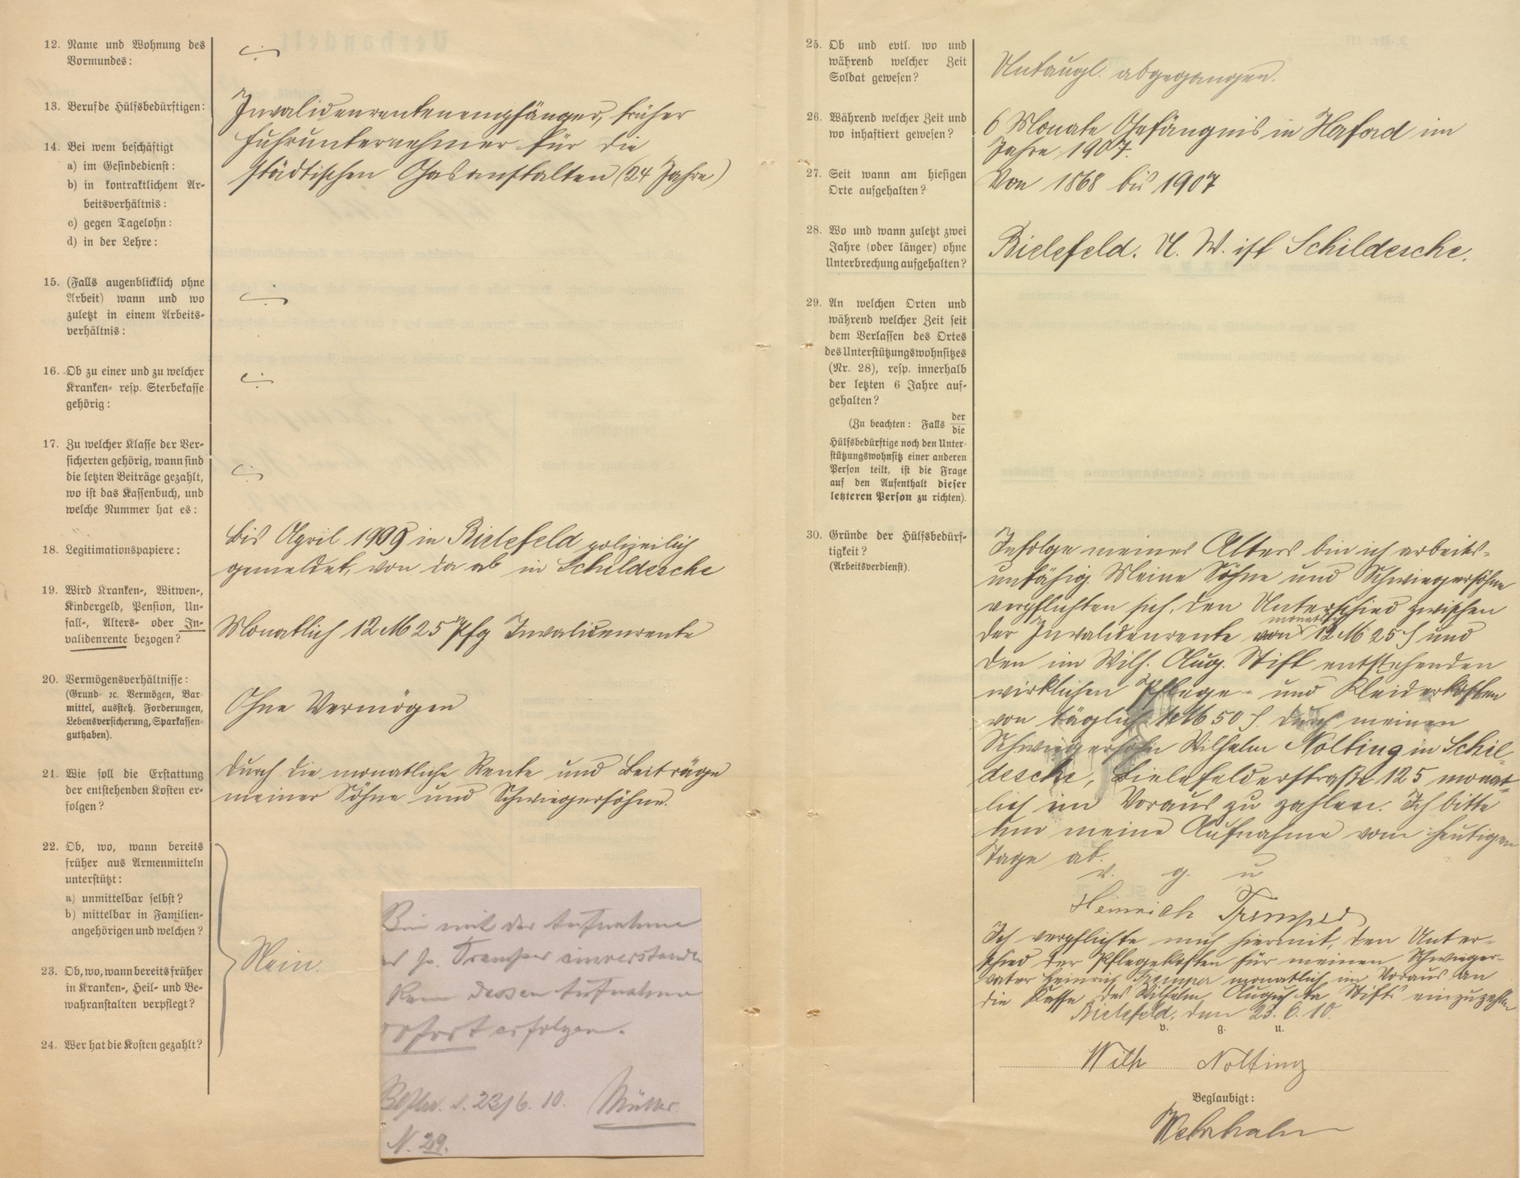 12. Name und Wohnung des
Vormundes:
13. Beruf de Hülfsbedürftigen:
Invalidenrentenempfänger, früher
Fuhrunternehmer für die
städtischen Gasanstalten (24 Jahre)
14. Bei wem beschäftigt
a) im Gesindedienst:
b) in kontraktlichem Ar-
beitsverhältnis:
c) gegen Tagelohn:
d) in der Lehre:
15. (Falls augenblicklich ohne
Arbeit) wann und wo
zuletzt in einem Arbeits-
verhältnis:
16. Ob zu einer und zu welcher
Kranken- resp. Sterbekasse
gehörig:
17. Zu welcher Klasse der Ver-
sicherten gehörig, wann sind
die letzten Beiträge gezahlt,
wo ist das Kassenbuch, und
welche Nummer hat es:
18. Legitimationspapiere:
bis April 1909 in Bielefeld polizeilich
gemeldet, von da ab in Schildesche
19. Wird Kranken-, Witwen-,
Kindergeld, Pension, Un-
fall-, Alters- oder In-
validenrente bezogen?
Monatlich 12 M 25 Pfg Invalidenrente
20. Vermögensverhältnisse:
(Grund- ꝛc. Vermögen, Bar-
mittel, aussteh. Forderungen,
Lebensversicherung, Sparkassen-
guthaben).
Ohne Vermögen
21. Wie soll die Erstattung
der entstehenden Kosten er-
folgen?
durch die monatliche Rente und Beiträge
meiner Söhne und Schwiegersöhne.
22. Ob, wo, wann bereits
früher aus Armenmitteln
unterstützt:
a) unmittelbar selbst?
b) mittelbar in Familien-
angehörigen und welchen?
23. Ob, wo, wann bereits früher
in Kranken-, Heil- und Be-
wahranstalten verpflegt?
24. Wer hat die Kosten gezahlt?
Nein.
Bin mit der Aufnahme
Tremper einverstanden
Kann dessen Aufnahme
sofort erfolgen.
d. 23/6. 10. Müller
N. 29.
25. Ob und evtl. wo und
während welcher Zeit
Soldat gewesen?
Untaugl. abgegangen.
26. Während welcher Zeit und
wo inhaftiert gewesen?
6 Monate Gefängnis in Herford im
Jahre 1907.
27. Seit wann am hiesigen
Orte aufgehalten?
Von 1868 bis 1907
28. Wo und wann zuletzt zwei
Jahre (oder länger) ohne
Unterbrechung aufgehalten?
Bielefeld. U. W. ist Schildesche.
29. An welchen Orten und
während welcher Zeit seit
dem Verlassen des Ortes
des Unterstützungswohnsitzes
(Nr. 28), resp. innerhalb
der letzten 6 Jahre auf-
gehalten?
(Zu beachten: Falls der/die
Hülfsbedürftige noch den Unter-
stützungswohnsitz einer anderen
Person teilt, ist die Frage
auf den Aufenthalt dieser
letzteren Person zu richten).
30. Gründe der Hülfsbedürf-
tigkeit?
(Arbeitsverdienst).
Infolge meines Alters bin ich arbeits-
unfähig. Meine Söhne und Schwiegersöhne
verpflichten sich, den Unterschied zwischen
der Invalidenrente von monatlich 12 M 25 ₰ und
den im Wilh. Aug. Stift entstehenden
wirklichen Pflege- und Kleiderkosten
von täglich 1 M 50 ₰ durch meinen
Schwiegersohn Wilhelm Nolting in Schil-
desche, Bielefelderstraße 125 monat-
lich im Voraus zu zahlen. Ich bitte
um meine Aufnahme vom heutigen
Tage ab.
v. g. u
Heinrich Tremper
Ich verpflichte mich hiermit, den Unter-
schied der Pflegekosten für meinen Schwieger-
vater Heinrich Tremper monatlich im Voraus an
die Kasse des Wilhelm Augusta Stifts einzuzahlen
Bielefeld, den 23. 6. 10.
v. g. u.
Wilh Nolting
Beglaubigt: